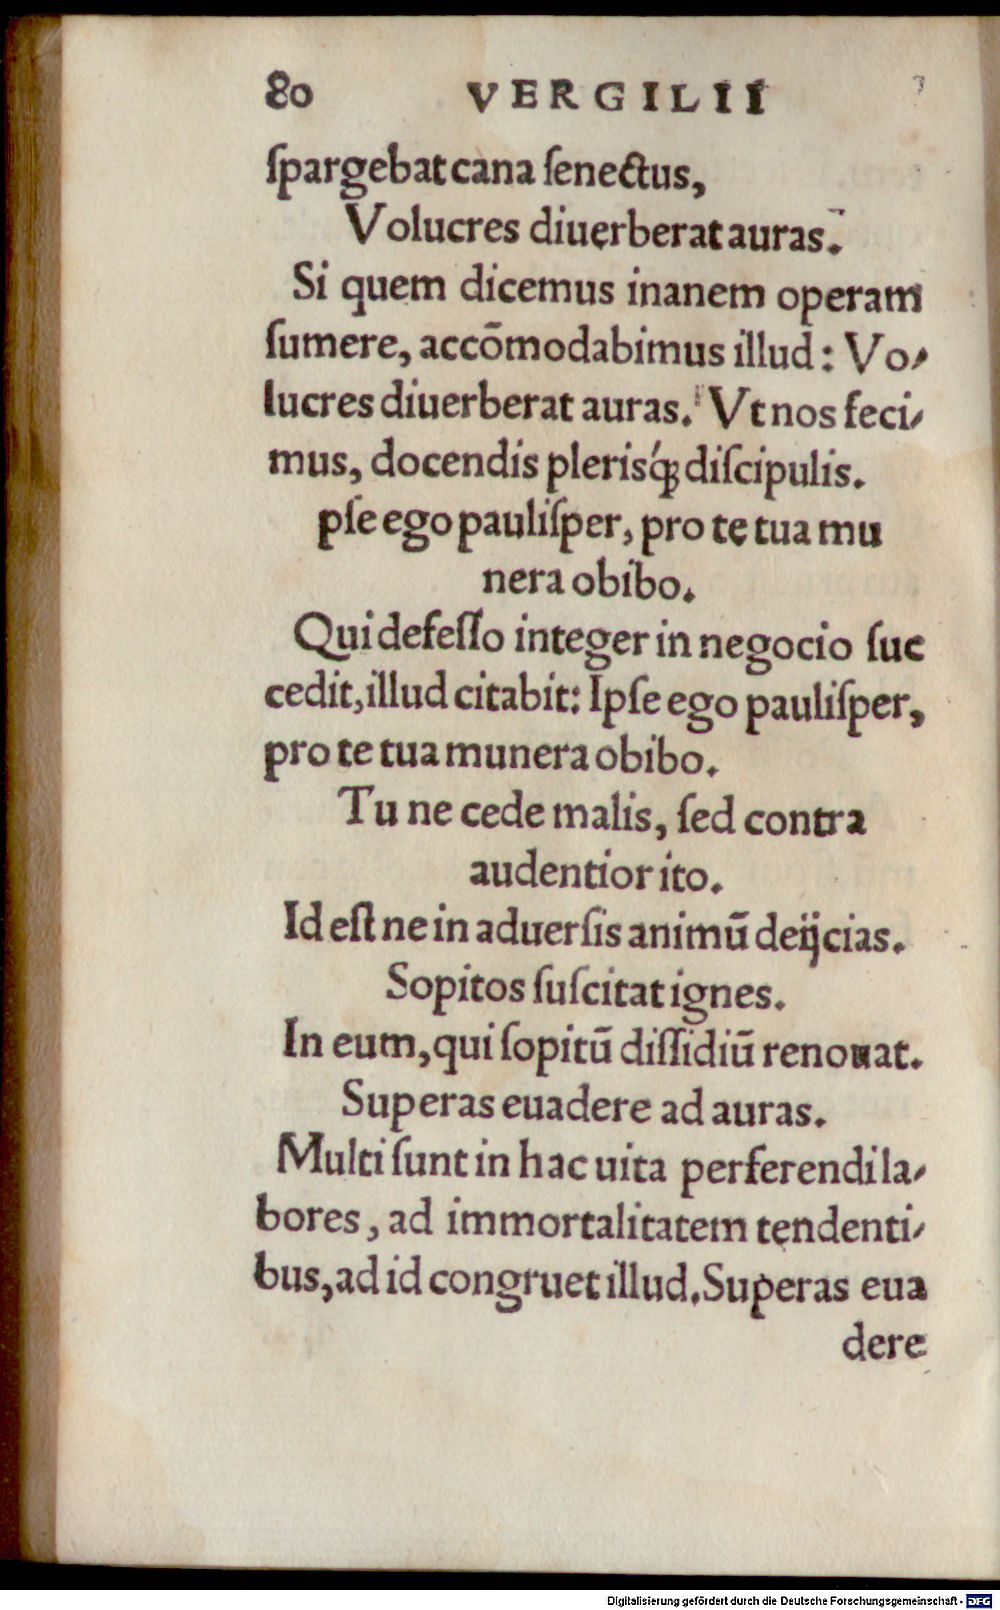 80 VERGILII
ſpargebat cana ſenectus,
Volucres diuerberat auras.
Si quem dicemus inanem operam
ſumere, accōmodabimus illud: Vo-
lucres diuerberat auras. Vt nos feci-
mus, docendis plerisq́ꝫ diſcipulis.
pſe ego pauliſper, pro te tua mu
nera obibo.
Qui defeſſo integer in negocio ſuc
cedit, illud citabit: Ipſe ego pauliſper,
pro te tua munera obibo.
Tu ne cede malis, ſed contra
audentior ito.
Id eſt ne in aduerſis animū deijcias.
Sopitos ſuſcitat ignes.
In eum, qui ſopitū diſſidiū renouat.
Superas euadere ad auras.
Multi ſunt in hac uita perferendi la-
bores, ad immortalitatem tendenti-
bus, ad id congruet illud. Superas eua
dere
Digitalisierung gefördert durch die Deutsche Forschungsgemeinschaft - DFG